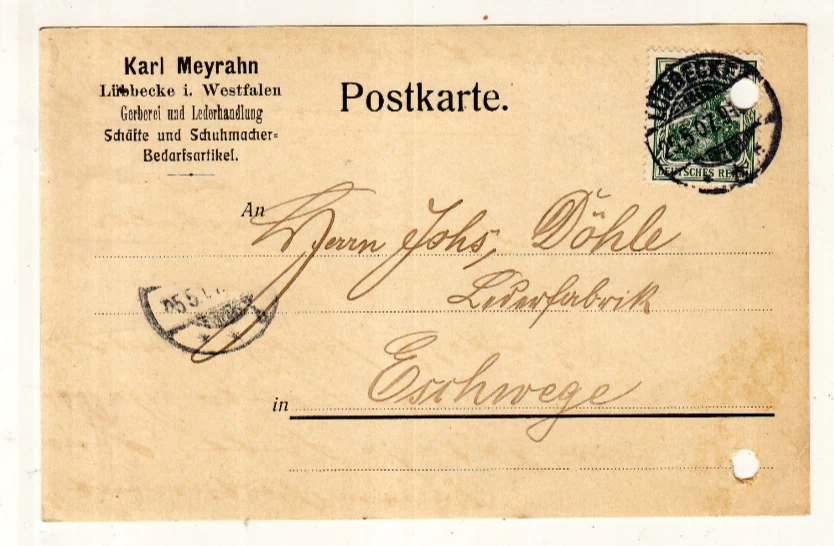 Karl Meyrahn
Lübbecke i. Westfalen
Gerberei und Lederhandlung
Schäfte und Schuhmacher-
Bedarfsartikel.
Postkarte.
LÜBBECKE
DEUTSCHES REICH
An
Herrn Johs, Döhle
Lederfabrik
in Eschwege